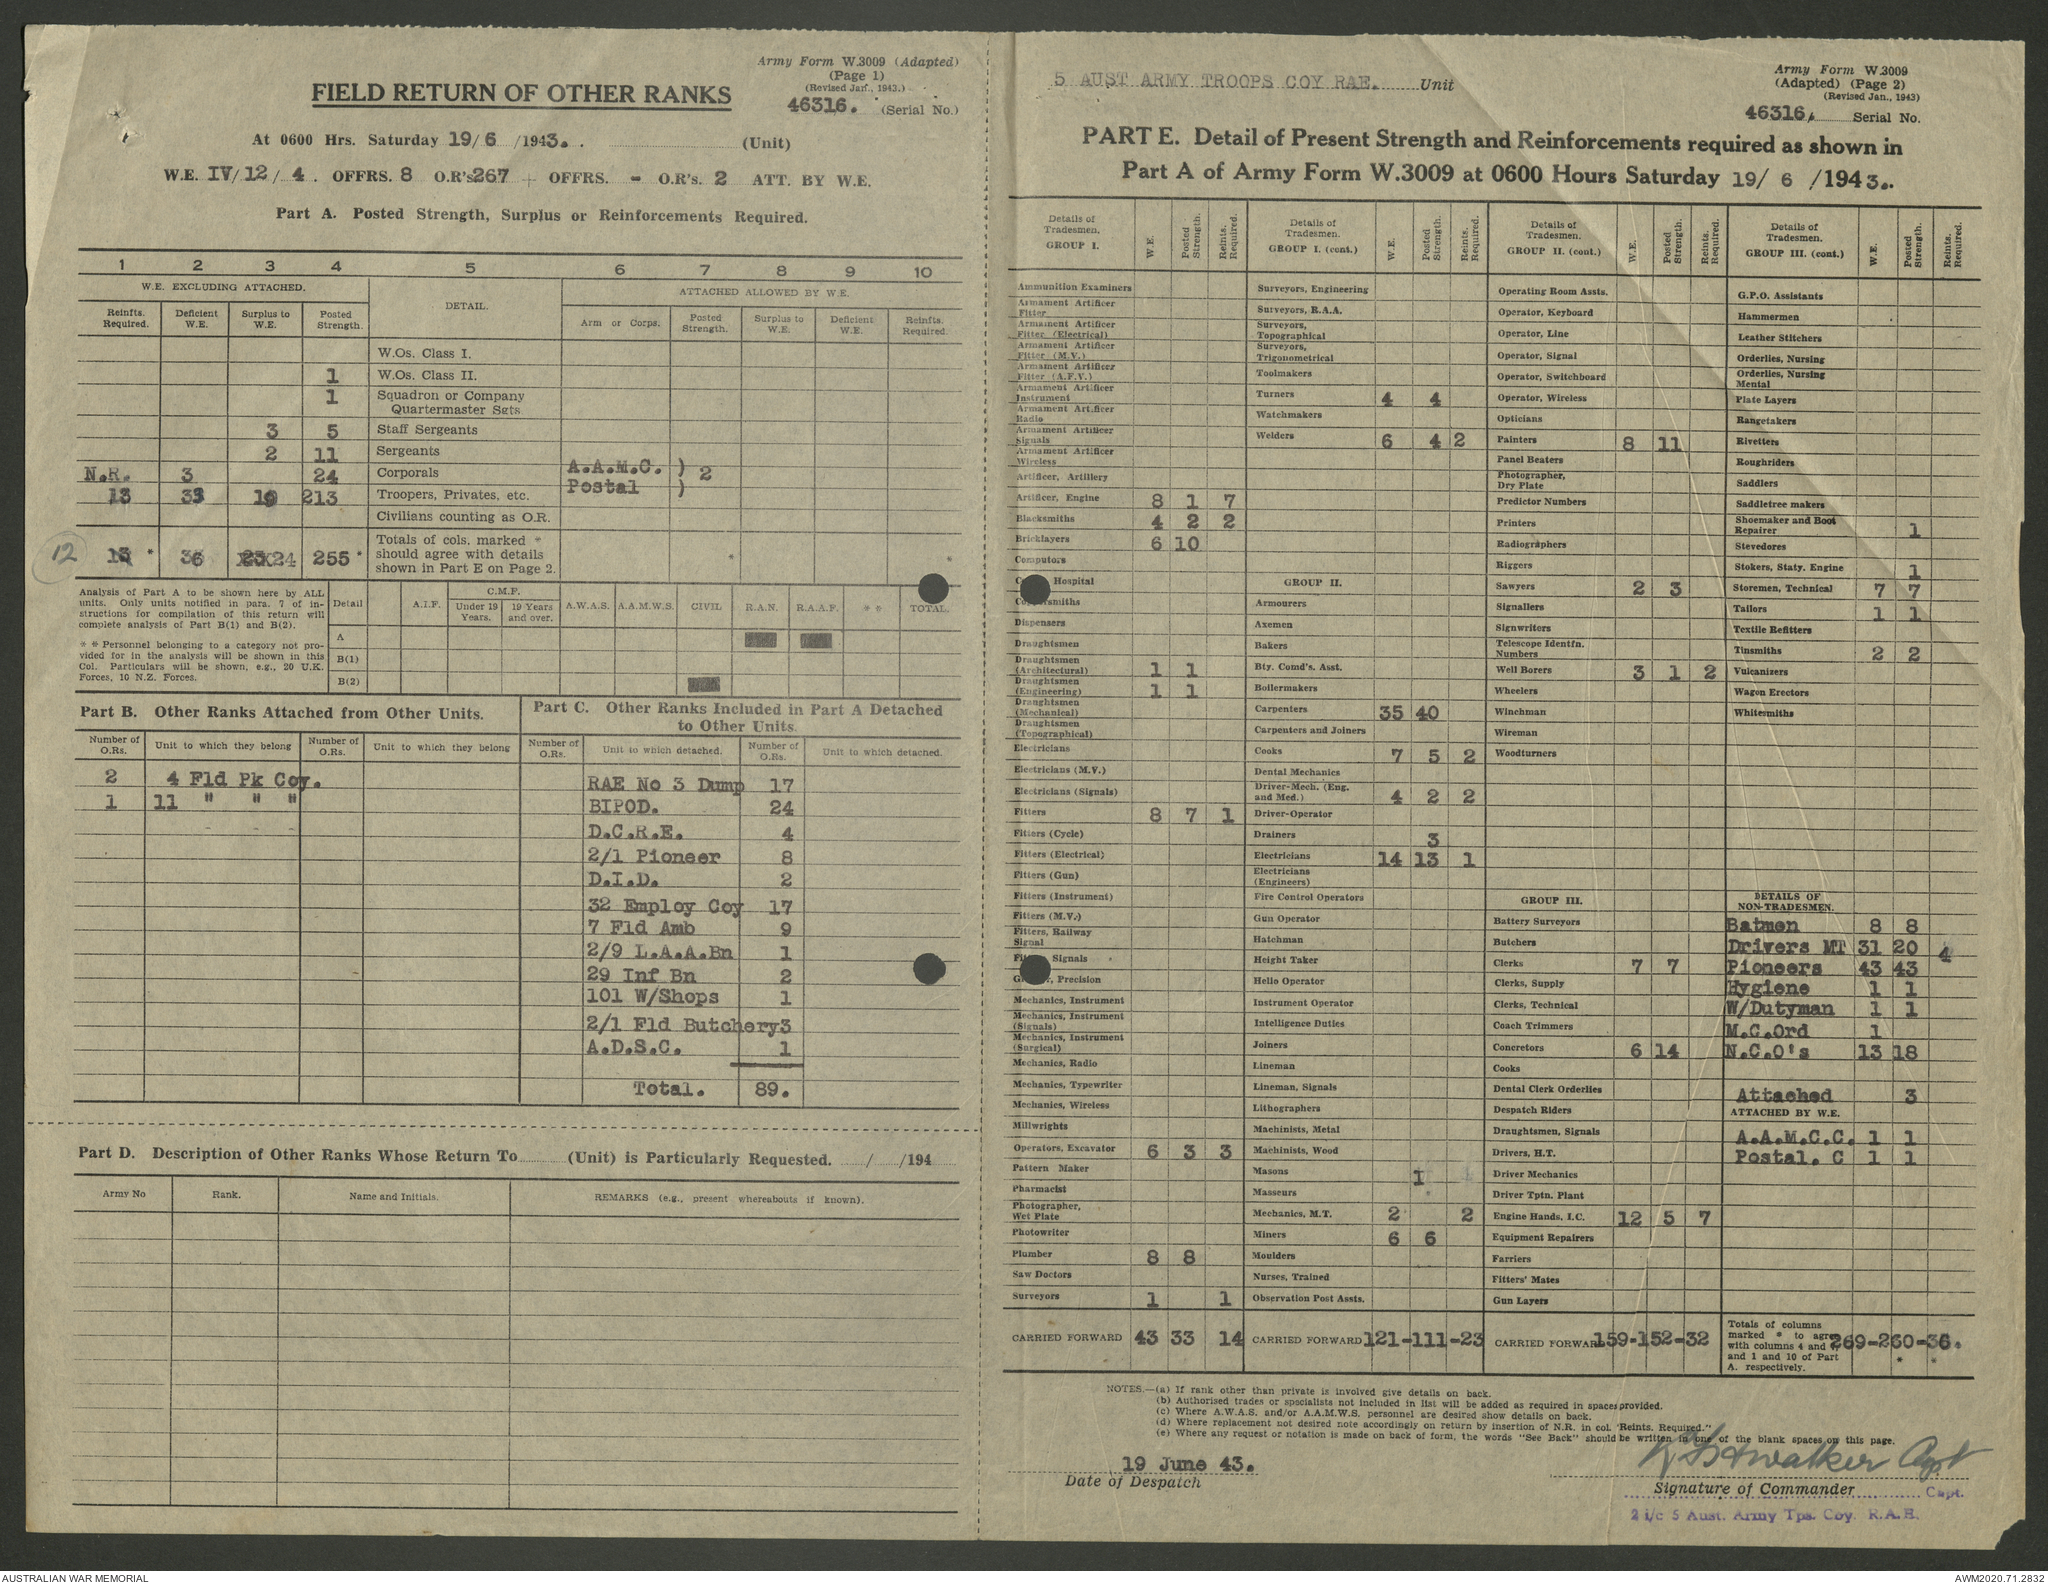 Army Form W.3009 (Adapted)
(Page 1)
(Revised Jan., 1943.)
FIELD RETURN OF OTHER RANKS
46316. (Serial No.)
At 0600 Hrs. Saturday 19/6 /1943. (Unit)
W.E. IV/12/4. OFFRS. 8 O.R's 267 + OFFRS. - O.R's. 2 ATT. BY W.E.
Part A. Posted Strength, Surplus or Reinforcements Required.
1 2 3 4 5 6 7 8 9 10
W.E. EXCLUDING ATTACHED. DETAIL. ATTACHED ALLOWED BY W.E.
Reinfts. Required. Deficient W.E. Surplus to W.E. Posted Strength. Arm or Corps. Posted Strength. Surplus to W.E. Deficient W.E. Reinfts. Required.
W.Os. Class I.
1 W.Os. Class II.
1 Squadron or Company
Quartermaster Sgts
3 5 Staff Sergeants
2 11 Sergeants
N.R. 3 24 Corporals A.A.M.C. ) 2
13 33 19 213 Troopers, Privates, etc. Postal )
Civilians counting as O.R.
12 13 * 36 24 255 * Totals of cols. marked *
should agree with details
shown in Part E on Page 2. * *
Analysis of Part A to be shown here by ALL
units. Only units notified in para. 7 of in-
structions for compilation of this return will
complete analysis of Part B(1) and B(2).
* * Personnel belonging to a category not pro-
vided for in the analysis will be shown in this
Col. Particulars will be shown, e.g., 20 U.K.
Forces, 10 N.Z. Forces.
Detail A.I.F. C.M.F. Under 19 Years. 19 Years and over. A.W.A.S. A.A.M.W.S. CIVIL R.A.N. R.A.A.F. * * TOTAL.
A
B(1)
B(2)
Part B. Other Ranks Attached from Other Units.
Number of O.Rs. Unit to which they belong Number of O.Rs. Unit to which they belong
2 4 Fld Pk Coy.
1 11 " " "
Part C. Other Ranks Included in Part A Detached
to Other Units.
Number of O.Rs. Unit to which detached. Number of O.Rs. Unit to which detached.
RAE No 3 Dump 17
BIPOD. 24
D.C.R.E. 4
2/1 Pioneer 8
D.I.D. 2
32 Employ Coy 17
7 Fld Amb 9
2/9 L.A.A.Bn 1
29 Inf Bn 2
101 W/Shops 1
2/1 Fld Butchery 3
A.D.S.C. 1
Total. 89.
Part D. Description of Other Ranks Whose Return To (Unit) is Particularly Requested. / /194
Army No Rank. Name and Initials. REMARKS (e.g., present whereabouts if known).
5 AUST ARMY TROOPS COY RAE. Unit
Army Form W.3009
(Adapted) (Page 2)
(Revised Jan., 1943)
46316. Serial No.
PART E. Detail of Present Strength and Reinforcements required as shown in
Part A of Army Form W.3009 at 0600 Hours Saturday 19/ 6 /1943.
Details of Tradesmen. GROUP I. W.E. Posted Strength. Reints. Required.
Ammunition Examiners
Armament Artificer Fitter
Armament Artificer Fitter (Electrical)
Armament Artificer Fitter (M.V.)
Armament Artificer Fitter (A.F.V.)
Armament Artificer Instrument
Armament Artificer Radio
Armament Artificer Signals
Armament Artificer Wireless
Artificer, Artillery
Artificer, Engine 8 1 7
Blacksmiths 4 2 2
Bricklayers 6 10
Computors
Hospital
Dispensers
Draughtsmen
Draughtsmen (Architectural) 1 1
Draughtsmen (Engineering) 1 1
Draughtsmen (Mechanical)
Draughtsmen (Topographical)
Electricians
Electricians (M.V.)
Electricians (Signals)
Fitters 8 7 1
Fitters (Cycle)
Fitters (Electrical)
Fitters (Gun)
Fitters (Instrument)
Fitters (M.V.)
Fitters, Railway Signal
Signals
Precision
Mechanics, Instrument
Mechanics, Instrument (Signals)
Mechanics, Instrument (Surgical)
Mechanics, Radio
Mechanics, Typewriter
Mechanics, Wireless
Millwrights
Operators, Excavator 6 3 3
Pattern Maker
Pharmacist
Photographer, Wet Plate
Photowriter
Plumber 8 8
Saw Doctors
Surveyors 1 1
CARRIED FORWARD 43 33 14
Details of Tradesmen. GROUP I. (cont.) W.E. Posted Strength. Reints. Required.
Surveyors, Engineering
Surveyors, R.A.A.
Surveyors, Topographical
Surveyors, Trigonometrical
Toolmakers
Turners 4 4
Watchmakers
Welders 6 4 2
GROUP II.
Armourers
Axemen
Bakers
Bty. Comd's. Asst.
Boilermakers
Carpenters 35 40
Carpenters and Joiners
Cooks 7 5 2
Dental Mechanics
Driver-Mech. (Eng. and Med.) 4 2 2
Driver-Operator
Drainers 3
Electricians 14 13 1
Electricians (Engineers)
Fire Control Operators
Gun Operator
Hatchman
Height Taker
Helio Operator
Instrument Operator
Intelligence Duties
Joiners
Lineman
Lineman, Signals
Lithographers
Machinists, Metal
Machinists, Wood
Masons 1
Masseurs
Mechanics, M.T. 2 2
Miners 6 6
Moulders
Nurses, Trained
Observation Post Assts.
CARRIED FORWARD 121-111-23
Details of Tradesmen. GROUP II. (cont.) W.E. Posted Strength. Reints. Required.
Operating Room Assts.
Operator, Keyboard
Operator, Line
Operator, Signal
Operator, Switchboard
Operator, Wireless
Opticians
Painters 8 11
Panel Beaters
Photographer, Dry Plate
Predictor Numbers
Printers
Radiographers
Riggers
Sawyers 2 3
Signallers
Signwriters
Telescope Identfn. Numbers
Well Borers 3 1 2
Wheelers
Winchman
Wireman
Woodturners
GROUP III.
Battery Surveyors
Butchers
Clerks 7 7
Clerks, Supply
Clerks, Technical
Coach Trimmers
Concretors 6 14
Cooks
Dental Clerk Orderlies
Despatch Riders
Draughtsmen, Signals
Drivers, H.T.
Driver Mechanics
Driver Tptn. Plant
Engine Hands, I.C. 12 5 7
Equipment Repairers
Farriers
Fitters' Mates
Gun Layers
CARRIED FORWARD 159-152-32
Details of Tradesmen. GROUP III. (cont.) W.E. Posted Strength. Reints. Required.
G.P.O. Assistants
Hammermen
Leather Stitchers
Orderlies, Nursing
Orderlies, Nursing Mental
Plate Layers
Rangetakers
Rivetters
Roughriders
Saddlers
Saddletree makers
Shoemaker and Boot Repairer 1
Stevedores
Stokers, Staty. Engine 1
Storemen, Technical 7 7
Tailors 1 1
Textile Refitters
Tinsmiths 2 2
Vulcanizers
Wagon Erectors
Whitesmiths
DETAILS OF NON-TRADESMEN.
Batmen 8 8
Drivers MT 31 20 4
Pioneers 43 43
Hygiene 1 1
W/Dutyman 1 1
M.C.Ord 1
N.C.O's 13 18
Attached 3
ATTACHED BY W.E.
A.A.M.C.C. 1 1
Postal. C 1 1
Totals of columns
marked * to agree
with columns 4 and
and 1 and 10 of Part
A. respectively.
269-260-36.
* *
NOTES.—(a) If rank other than private is involved give details on back.
(b) Authorised trades or specialists not included in list will be added as required in spaces provided.
(c) Where A.W.A.S. and/or A.A.M.W.S. personnel are desired show details on back.
(d) Where replacement not desired note accordingly on return by insertion of N.R. in col. "Reints. Required."
(e) Where any request or notation is made on back of form, the words "See Back" should be written in one of the blank spaces on this page.
19 June 43.
Date of Despatch
walker Capt
Signature of Commander Capt.
2 i/c 5 Aust. Army Tps. Coy. R.A.E.
AUSTRALIAN WAR MEMORIAL
AWM2020.71.2832